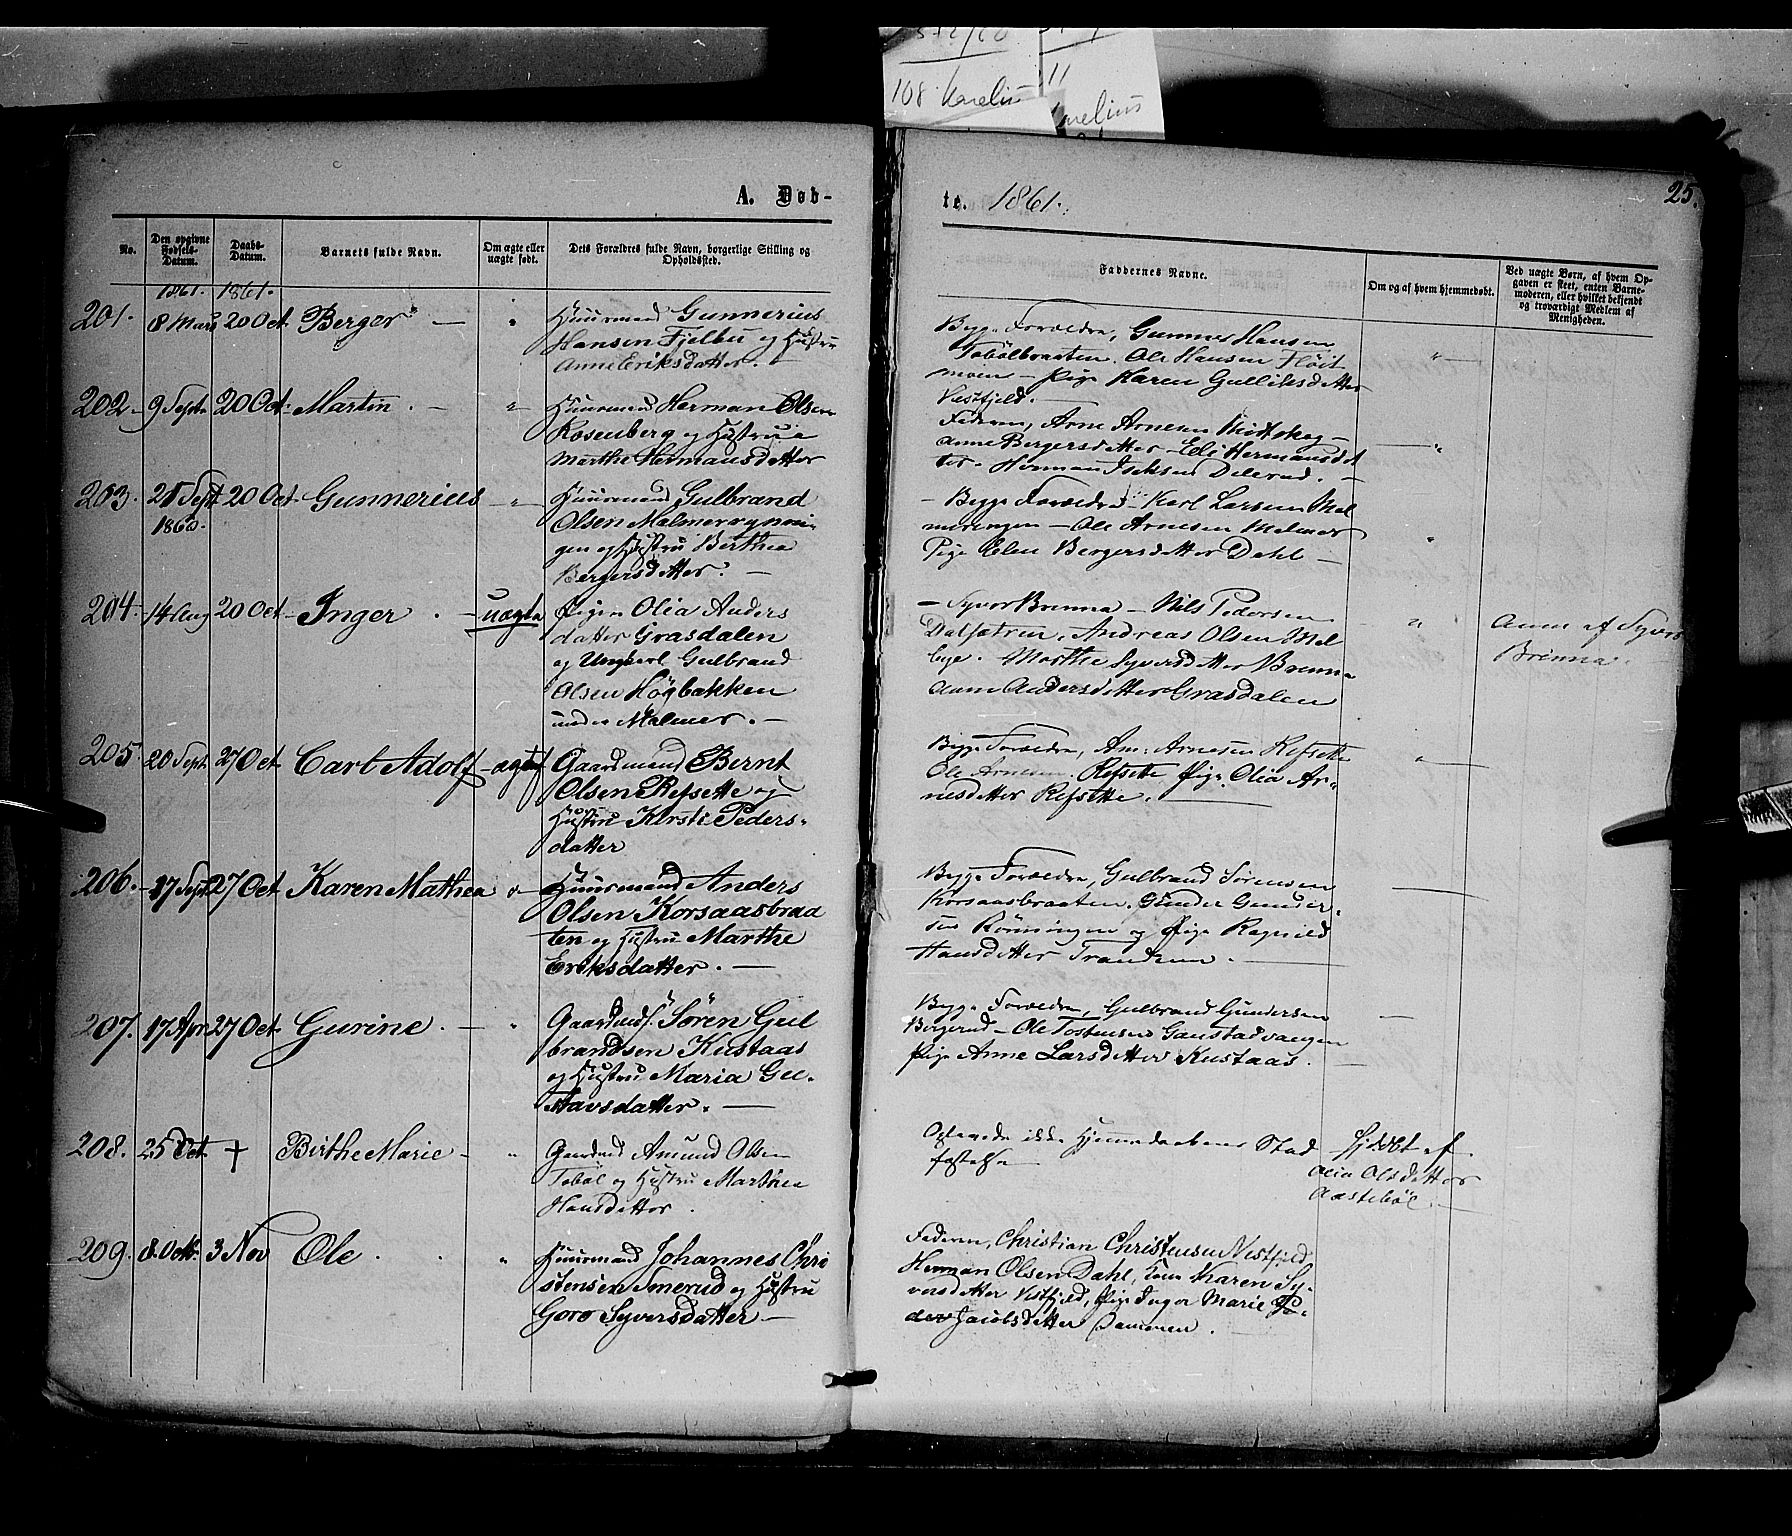 108 Karelius
11
A. Døb-
te. 1861.
25.
No.
Den opgivne Fødsels-Datum.
Daabs-Datum.
Barnets fulde Navn.
Om ægte eller uægte født.
Dets Forældres fulde Navn, borgerlige Stilling og Opholdssted.
Faddernes Navne.
Om og af hvem hjemmedøbt.
Ved uægte Børn, af hvem Op-
gaven er skeet, enten Barne-
moderen, eller hvilket bekjendt
og troværdigt Medlem af
Menigheden.
1861. 1861.
201. 8 Mars 20 Oct. Berger — " Huusmand Gunnerius
Hansen Fjelbu og Hustru
Anne Eriksdatter. —
Begge Forældre, Gunner Hansen
Tobølbraaten. Ole Hansen Fløit-
moen — Pige Karen Gulliksdatter
Vestfjeld. —
202. 9 Septr 20 Oct. Martin. — " Huusmand Herman Olsen
Rosenberg og Hustrue
Marthe Hermansdatter
Faderen, Arne Arnesen Midtskog —
Anne Bergersdatter — Eli Hermansdat
ter. Herman Delerud. —
203. 21 Sept. 20 Oct. Gunnerius — " Huusmand Gulbrand
1860.
Olsen Malmerrynnin-
gen og Hustru Berthea
Bergersdatter. —
— Begge Forældre — Karl Larsen Mal
merengen — Ole Arnesen Malmer
Pige Elen Bergersdatter Dahl —
204. 14 Aug 20 Oct. Inger. — uægte Pigen Olia Anders
datter Grasdalen
og Ungkarl Gulbrand
Olsen Høgbakken
under Malmer. —
— Syver Brenna — Nils Pedersen
Dalsætren, Andreas Olsen Mel
bye. Marthe Syversdatter Brenna
Anne Andersdatter Grasdalen
Anm. af Syver
Brenna.
205. 20 Sept. 27 Oct. Carl Adolf — ægte Gaardmand Bernt
Olsen Refsette og
Hustru Kersti Peders-
datter
Begge Forældre, Am: Arnesen Refsette
Ole Arnesen Refsette Pige Olia Ar-
nesdatter Refsette. —
206. 17 Sept 27 Oct. Karen Mathea " Huusmand Anders
Olsen Korsaasbraa
ten og Hustru Marthe
Eriksdatter. —
Begge Forældre, Gulbrand Sørensen
Korsaasbraaten. Gunder Gunder-
sen Rønningen og Pige Ragnild
Hansdatter Trandsen. —
207. 17 Apr 27 Oct. Gurine. — " Gaardmd. Søren Gul
brandsen Kustaas
og Hustru Maria Gu-
stavsdatter. —
Begge Forældre, Gulbrand Gundersen
Bergerud — Ole Tostensen Gaustadvangen
Pige Anne Larsdatter Kustaas.
208. 25 Oct. † Birthe Marie — " Gaardmd Amund Olsen
Tobøl og Hustru Marthea
Hansdatter.
ikke Hjemmedaabens Stad
fæstelse
Hj.døbt af
Olia Olsdatter
Aastebøl
209. 8. Octbr. 3 Nov Ole. " Huusmand Johannes Chri
stensen Smerud og Hustru
Goro Syversdatter —
Faderen, Christian Christensen Vestfjeld
Herman Olsen Dahl, Kone Karen Sy-
versdatter Vestfjeld, Pige Inger Marie Pe-
der Jacobsdatter Dammen. —